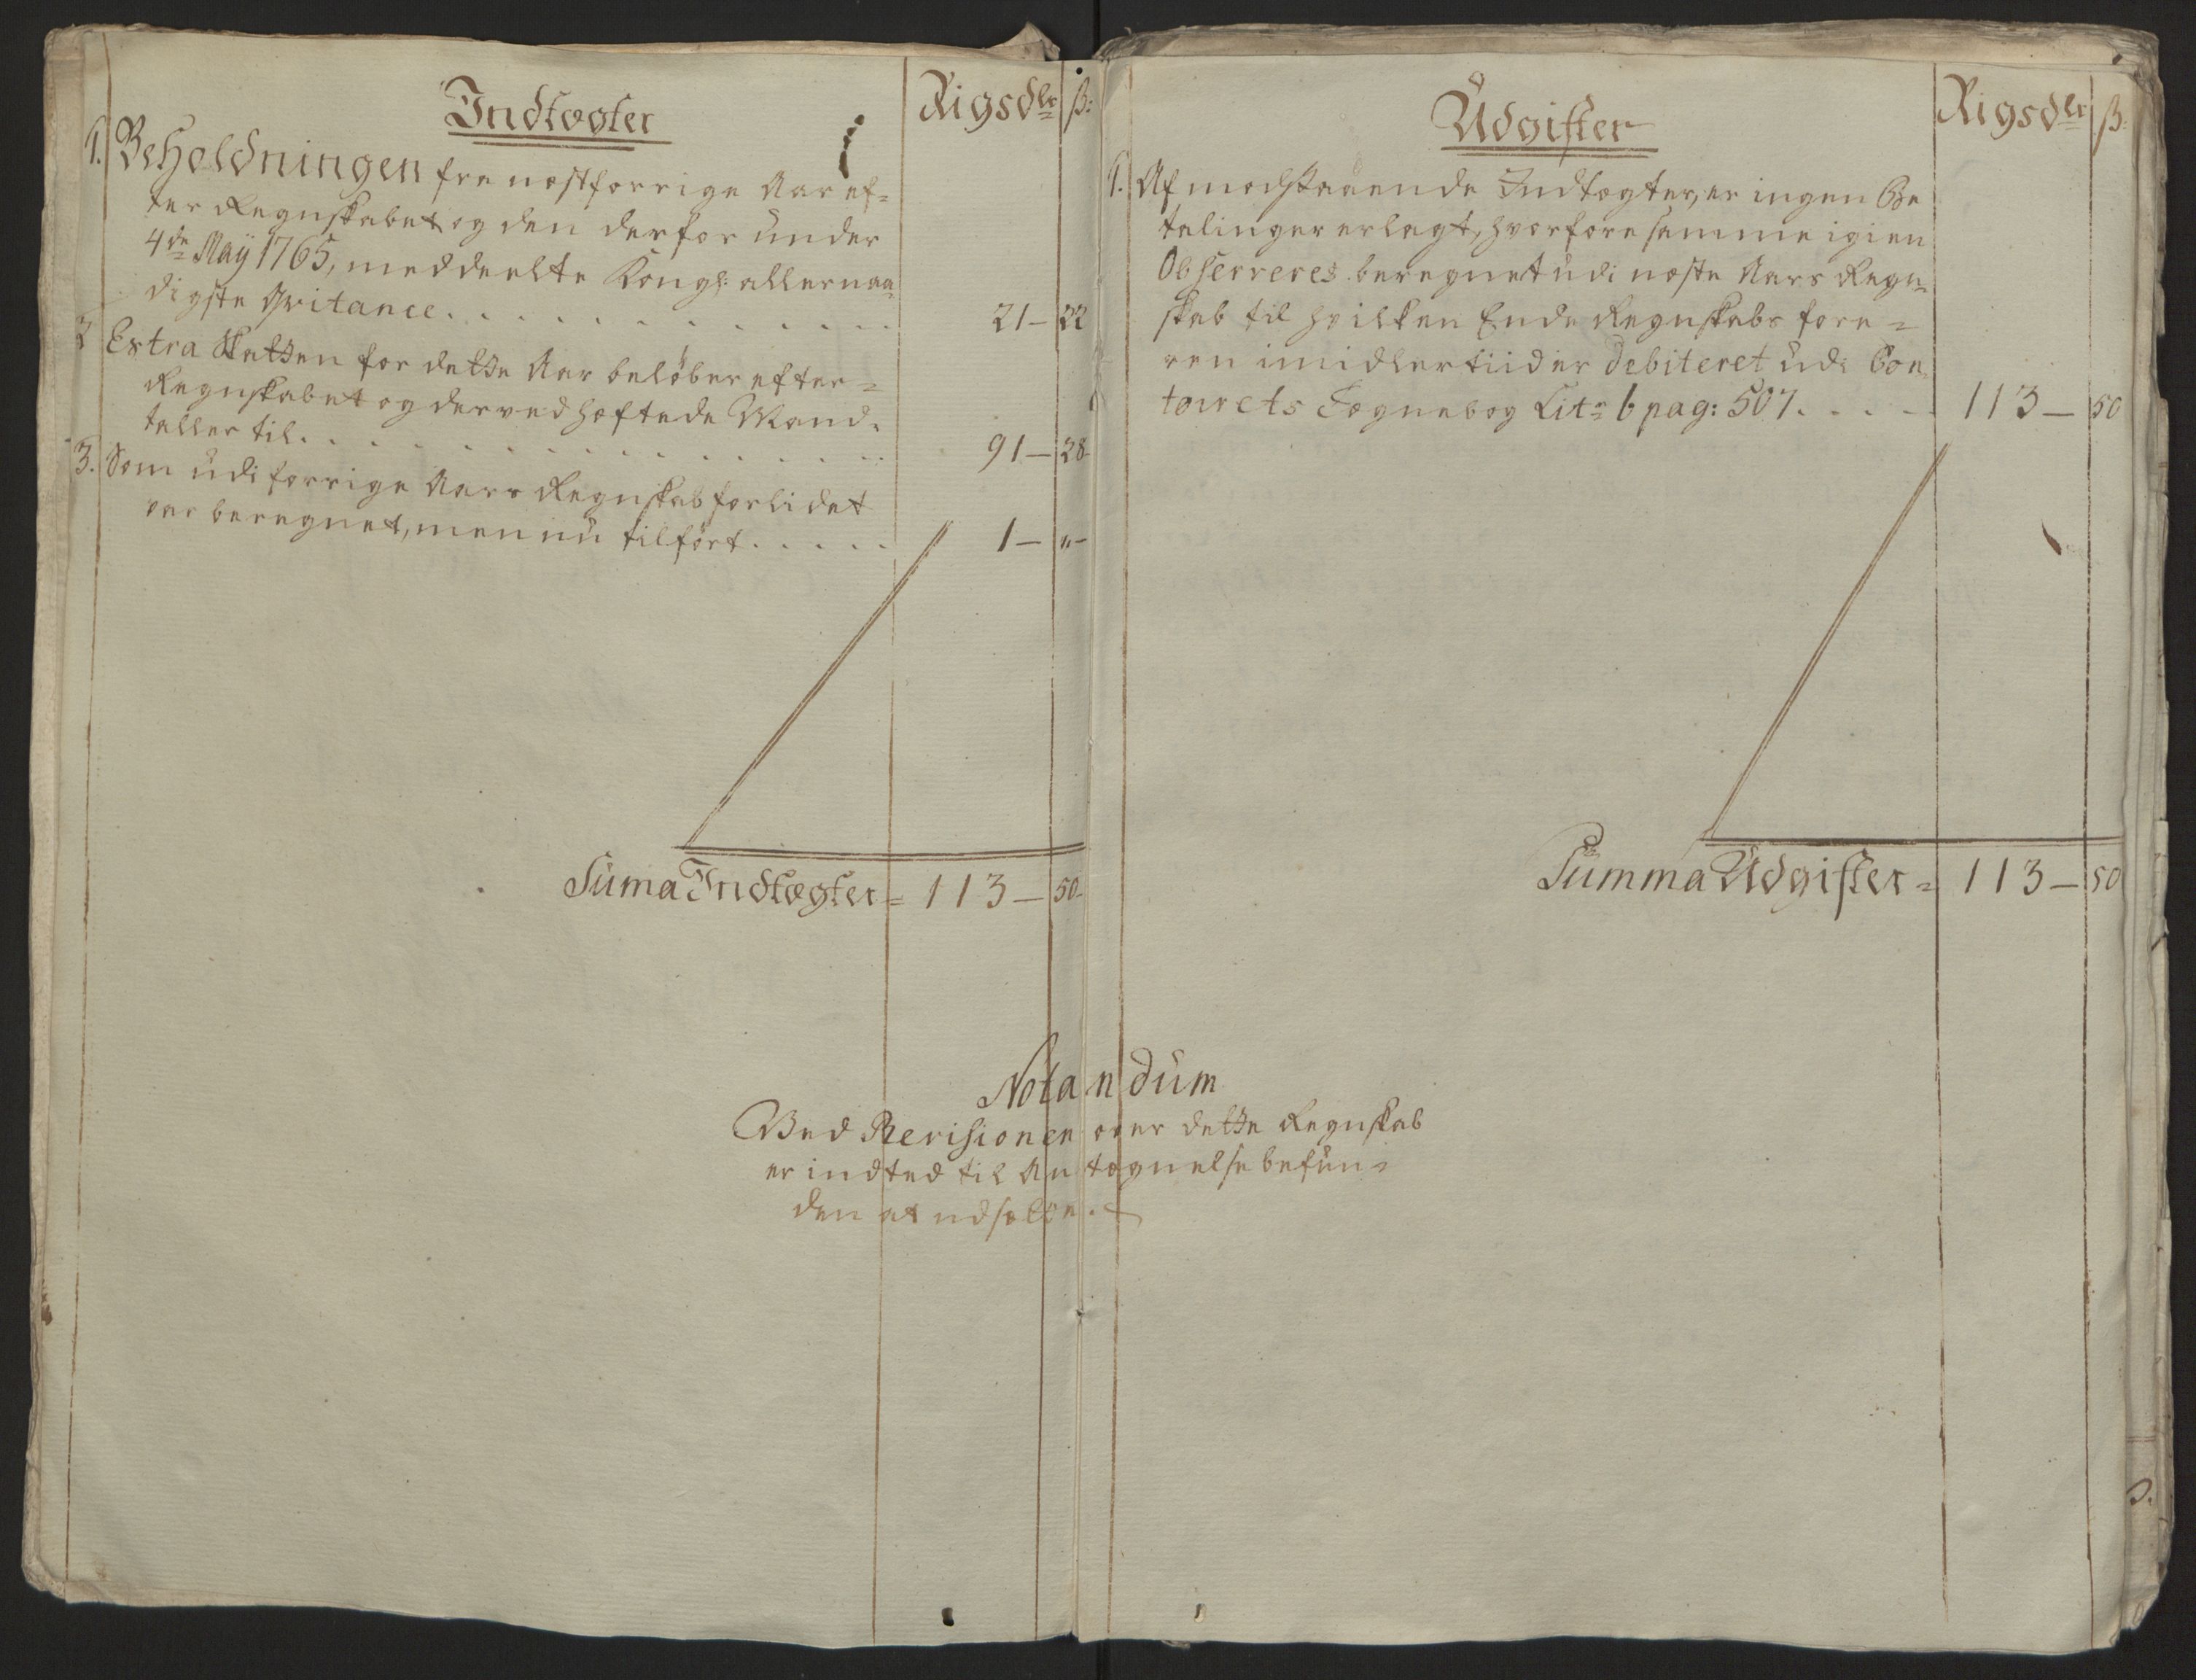 Indtægter
Rigsdlr ß:
1. Beholdningen fra næstforrige Aar ef-
ter Regnskabet og den derfor under
4de Maÿ 1765, meddeelte Kongl: allernaa-
digste Qvitance. . . . . . . . . . . . 21 — 22
2 Extra Skatten for dette Aar beløber efter-
Regnskabet og derved hæftede Mand-
taller til. . . . . . . . . . . . . . . 91 — 28
3. Som udi forrige Aars Regnskab forlidet
var beregnet, men nu tilført. . . . . 1 — "—
Suma Indtægter = 113 — 50
Udgifter
Rigsdlr ß:
1. Af modstaaende Indtægter, er ingen Be
talinger erlagt, hvorfore samme igien
Observeres beregnet udi næste Aars Regn-
skab til hvilken Ende Regnskabs føre-
ren imidlertiid er Debiteret udi Con
toirets Tegnebog Litr b pag: 507. . . . 113 — 50
Summa Udgifter = 113 — 50
Notandum
Ved Revisionen over dette Regnskab
er indted til Antegnelse befun-
den at udsætte.